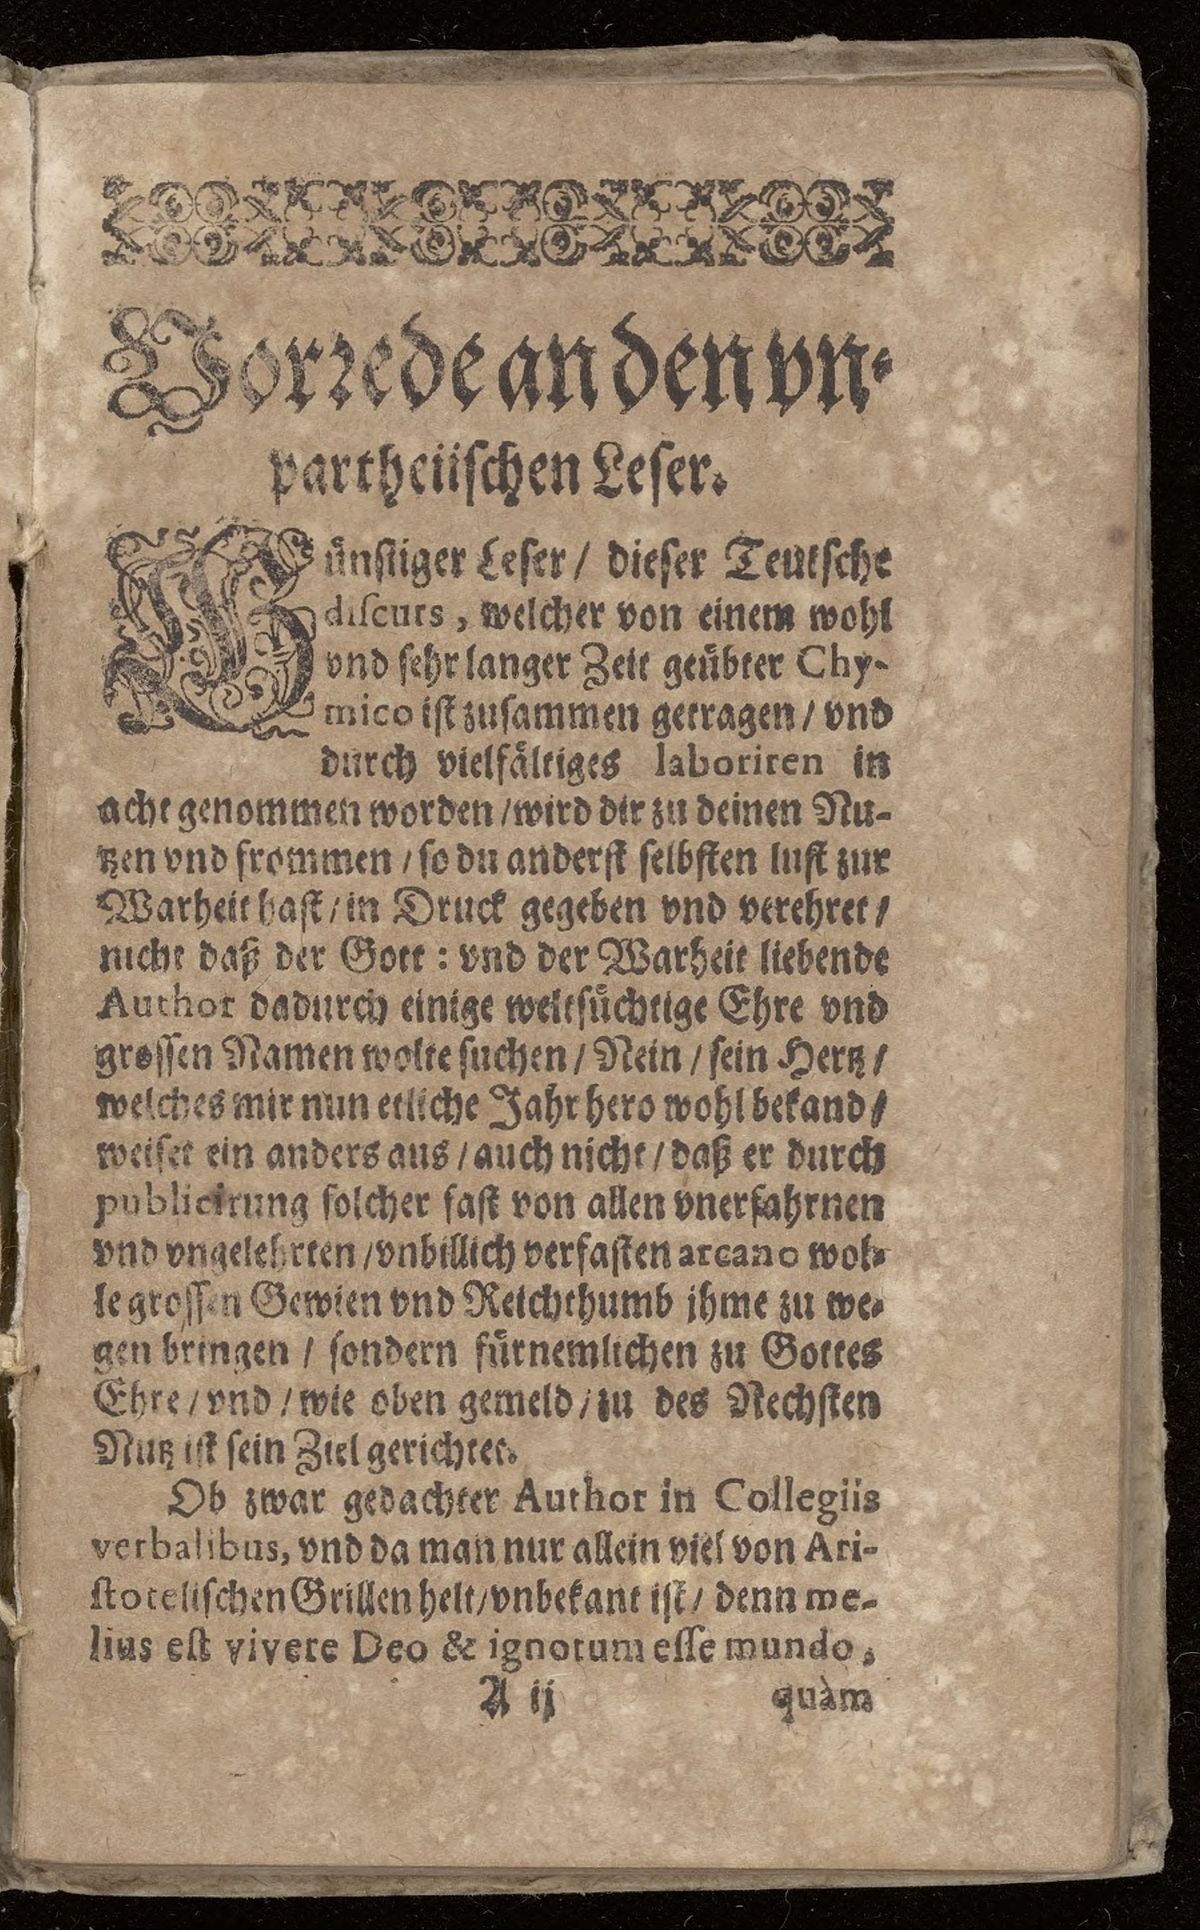 Vorrede an den vn-
partheiischen Leser.
Günstiger Leser / dieser Teutsche
discurs, welcher von einem wohl
vnd sehr langer Zeit geübter Chy-
mico ist zusammen getragen / vnd
durch vielfältiges laboriren in
acht genommen worden / wird dir zu deinen Nu-
tzen vnd frommen / so du anderst selbsten lust zur
Warheit hast / in Druck gegeben vnd verehret /
nicht daß der Gott : vnd der Warheit liebende
Author dadurch einige weltsüchtige Ehre vnd
grossen Namen wolte suchen / Nein / sein Hertz /
welches mir nun etliche Jahr hero wohl bekand /
weiset ein anders aus / auch nicht / daß er durch
publicirung solcher fast von allen vnerfahrnen
vnd vngelehrten / vnbillich verfasten arcano wol-
le grossen Gewien vnd Reichthumb jhme zu we-
gen bringen / sondern fürnemlichen zu Gottes
Ehre / vnd / wie oben gemeld / zu des Nechsten
Nutz ist sein Ziel gerichtet.
Ob zwar gedachter Author in Collegiis
verbalibus, vnd da man nur allein viel von Ari-
stotelischen Grillen helt / vnbekant ist / denn me-
lius est vivere Deo & ignotum esse mundo,
A ij quàm